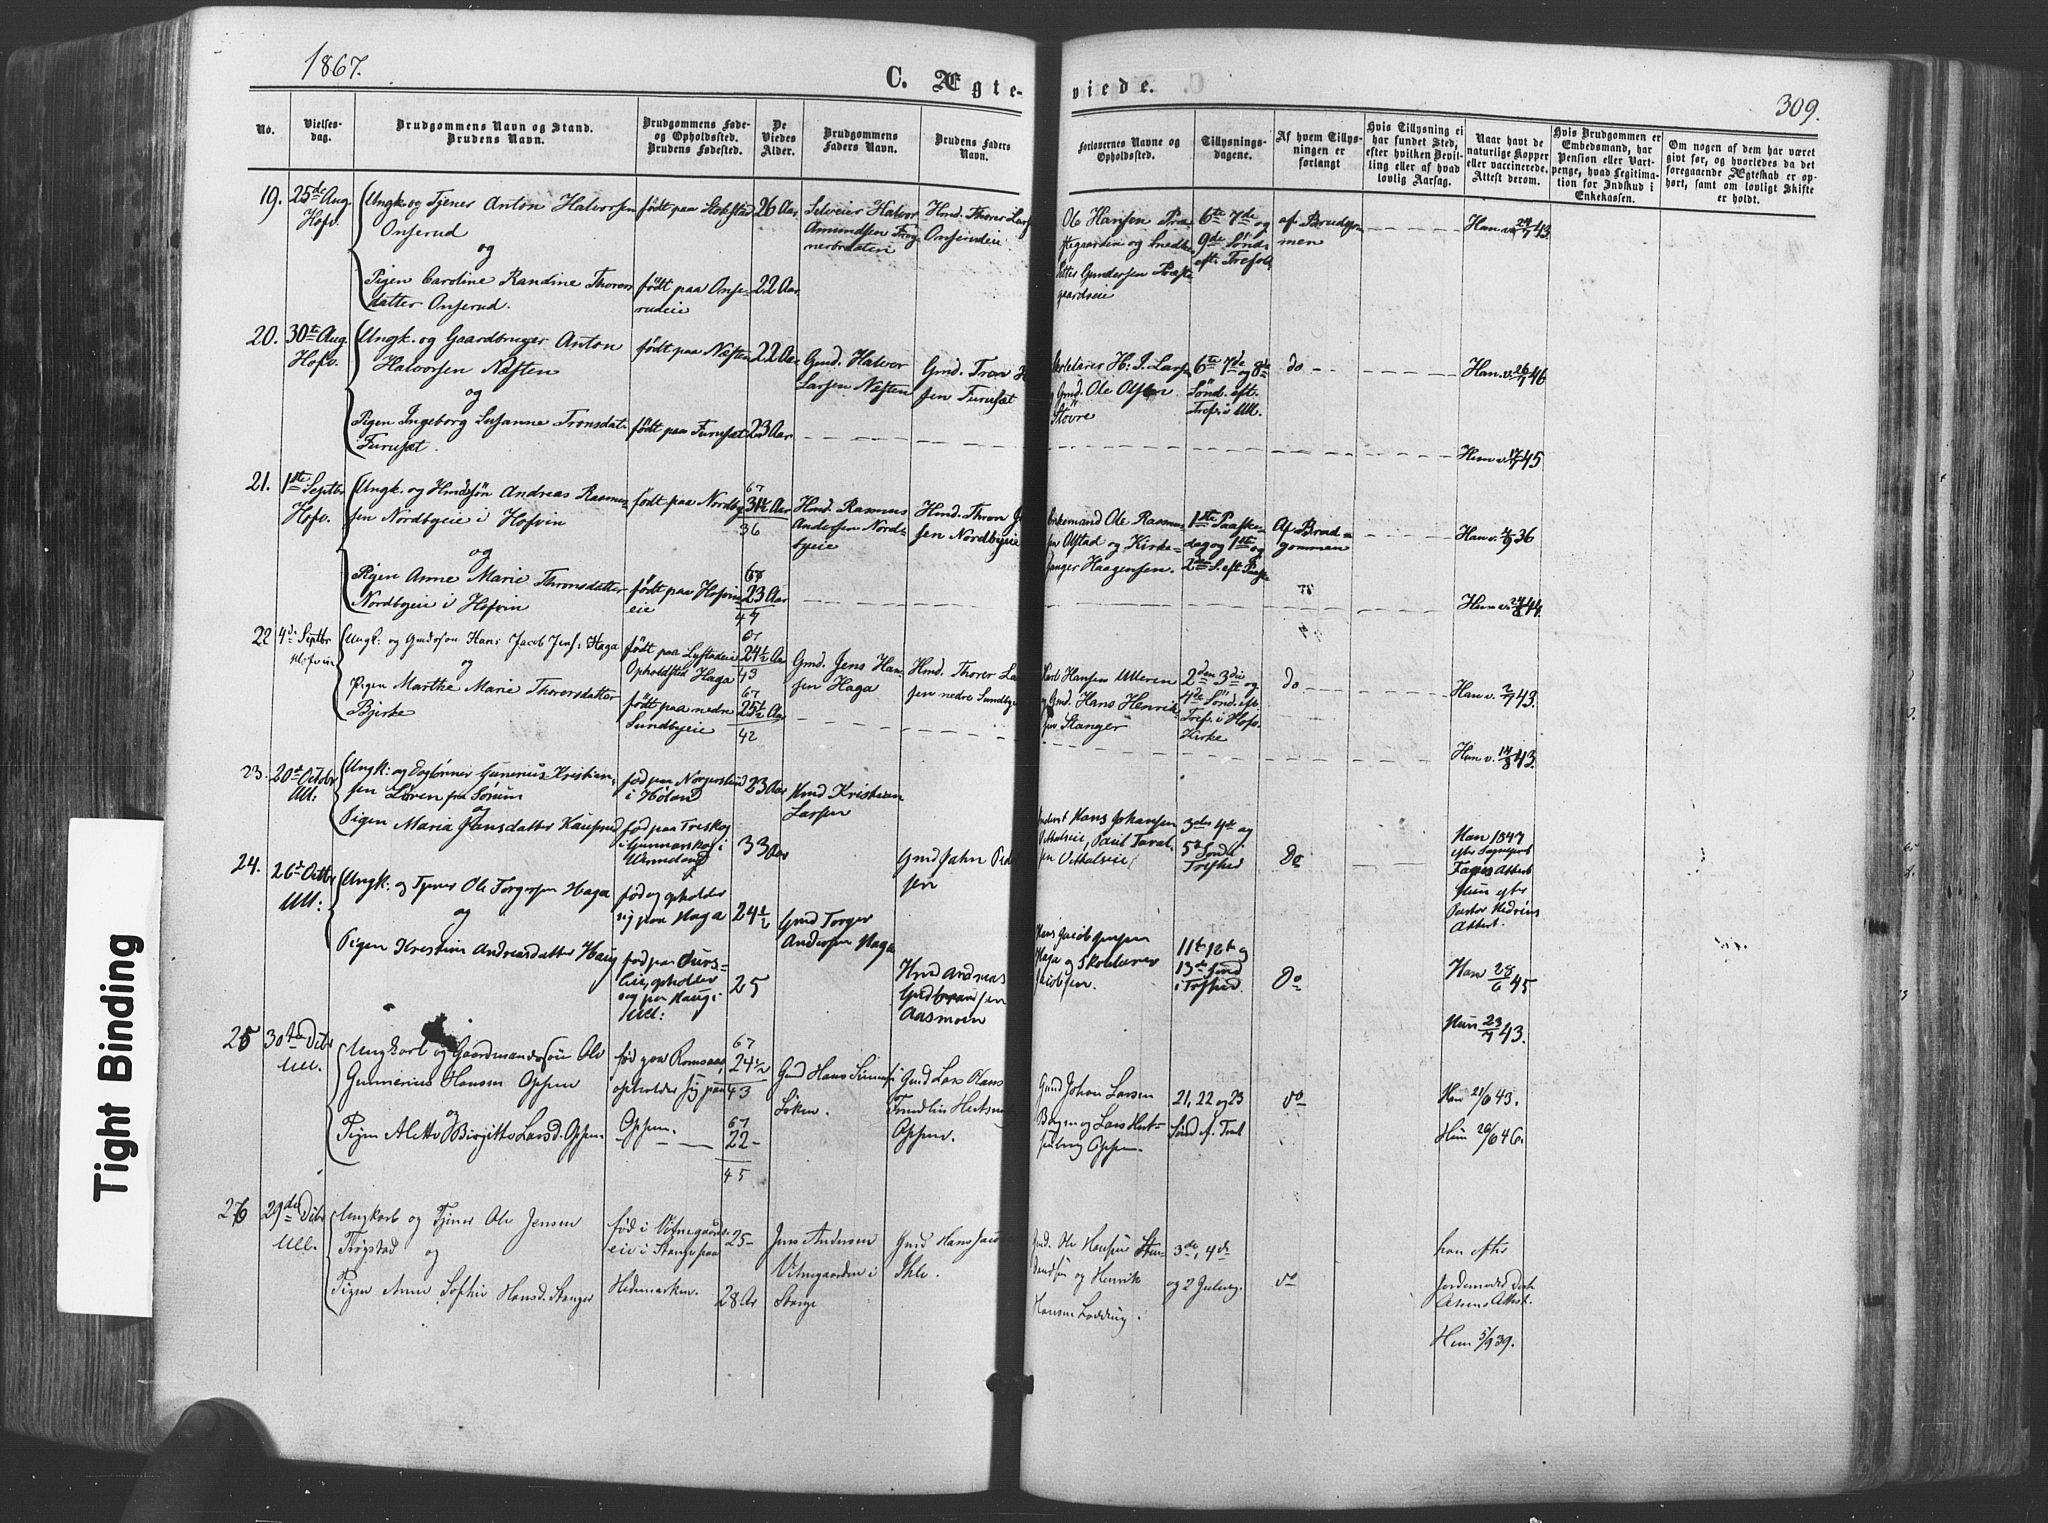 1867.
C. Ægte-
viede.
309.
No.
Vielses-
dag.
Brudgommens Navn og Stand.
Brudens Navn.
Brudgommens Føde-
og Opholdssted.
Brudens Fødested.
De
Viedes
Alder.
Brudgommens
Faders Navn.
Brudens Faders
Navn.
Forlovernes Navne og
Opholdssted.
Tillysnings-
dagene.
Af hvem Tillys-
ningen er
forlangt
Hvis Tillysning ei
har fundet Sted,
efter hvilken Bevil-
ling eller af hvad
lovlig Aarsag.
Naar havt de
naturlige Kopper
eller vaccinerede.
Attest derom.
Hvis Brudgommen er
Embedsmand, har
Pension eller Vart-
penge, hvad Legitima-
tion for Indskud i
Enkekassen.
Om nogen af dem har været
givt før, og hvorledes da det
foregaaende Ægteskab er op-
hørt, samt om lovligt Skifte
er holdt.
19.
25de Aug.
Hofv.
Ungk og Tjener Anton Halvorsen
Onserud
og
Pigen Caroline Randine Thorers
datter Onserud.
født paa Stokstad
født paa Onse-
rudeie
26 Aar
22 Aar
Selveier Halvor
Amundsen
Hmd. Thorer Lars
Onserudeie
Ole Hansen Præ-
stegaarden og Smed
Petter Gundersen Præste-
gaardseie
6te 7de og
9de Sønd.
eft. Trefold.
af Brudgom
men
Han v. 24/7 43.
20.
30te Aug.
Hofv.
Ungk. og Gaardbruger Anton
Halvorsen Næsten
og
Pigen Ingeborg Susanne Tronsdat.
Furuset.
født paa Næsten
født paa Furuset
22 Aar
23 Aar
Gmd. Halvor
Larsen Næsten
Gmd. Tron
sen Furuset
H. J. Lars
Gmd. Ole Olsen
Støvre
6te 7de
og 8de
Sønd. eft.
Tref. i Ull.
do
Han. v. 26/7 46
Hun v. 17/7 45
21.
1ste Septbr
Hofv.
Ungk. og Hmdsøn Andreas Rasmus-
sen Nordbyeie i Hofvin
og
Pigen Anne Marie Thronsdatter
Nordbyeie i Hofvin
født paa Nordby
født paa Hofvin
eie
67
31½ Aar
36
67
23 Aar
Hmd. Rasmus
Andersen Nord-
byeie
Hmd. Thron
sen Nordbyeie
Kirkemand Ole Rasmus
sen Olstad og Kirke-
sanger Haagensen.
1ste Paaske-
dag og 1ste og
2den S. eft Paaske
Af Brud-
gommen
Han v. 2/9 36
Hun v. 24/8 44.
22
4de Septbr
Hofvin
Ungk: og Gmdsøn Hans Jacob Jens: Haga
og
Pigen Marthe Marie Thorersdatter
Bjerke
født paa Lystadeie
Opholdsted Haga
født paa nedre
Sundbyeie
67
24½ Aar
43
67
25½ Aar
42
Gmd. Jens Han-
sen Haga
Hmd. Thorer La
sen nedre Sundbye
Hansen Ulleren
og Gmd. Hans Henrik-
sen Stanger
2den 3die og
4de Sønd. eft.
Tref. i Hofv.
Kirke
do
Han v. 2/9 43.
Hun v. 14/8 43.
23.
20de Octobr
Ull:
Ungk: og Gunerius Kristian-
sen Løren fra Sørum
og
Pigen Maria Jansdatter
fød paa
i Høland
fød paa Treskog
i Gunnarskog i
Wermeland
23 Aar
33 Aar
Hmd Kristian
Larsen
Gmd Jahn
sen
Hans Johansen
3die 4de og
5te Sønd
Trefhed
Do
Han 1847
efter
Attest
Hun efter
Pastor
Attest.
24.
26de Octbr
Ull:
Ungk: og Tjener Ole Torgersen Haga
og
Pigen Kristine Andreasdatter Haug
fød og opholder
sig paa Haga
fød paa
opholder
sig paa Haug i
Ull:
24½
25
Gmd Torger
Andersen Haga
Hmd Andreas
Gulbrandsen
Aasmoen
Hans Jacob Jensen
Haga og Skolelærer
Jacobsen.
11te 12te og
13de Sønd
i Trefhed.
Do
Han 28/6 45
Hun 23/7 43.
25
30te Dcbr
Ull.
Ungkarl og Gaardmandssøn Ole
Gunnerius Hansen Oppen
og
Pigen Alette Birgitte Larsd. Oppen
fød paa Romsaas,
opholder sig paa
Oppen.
Oppen
67
24½
43
67
22
45
Gmd Hans
Gmd Lars Hans
Oppen.
Gmd Johan Larsen
og Lars
Oppen.
21, 22 og 23
Sønd ef. Tref
do
Han 21/6 43.
Hun 20/6 46.
26
29de Dcbr
Ull.
Ungkarl og Tjener Ole Jensen
Trøgstad og
Pigen Anne Sophie Hansd. Stanger
fød i
eie i Stange paa
Hedemarken.
25
28 Ar
Jens Andersen
i
Stange
Gmd Hans Jacob
Ihle.
Gmd. Ole Hansen
og Henrik
Hansen
3de, 4de
og 2 Juledag.
do
han efter
Attest.
Hun 5/9 39.
Tight Binding